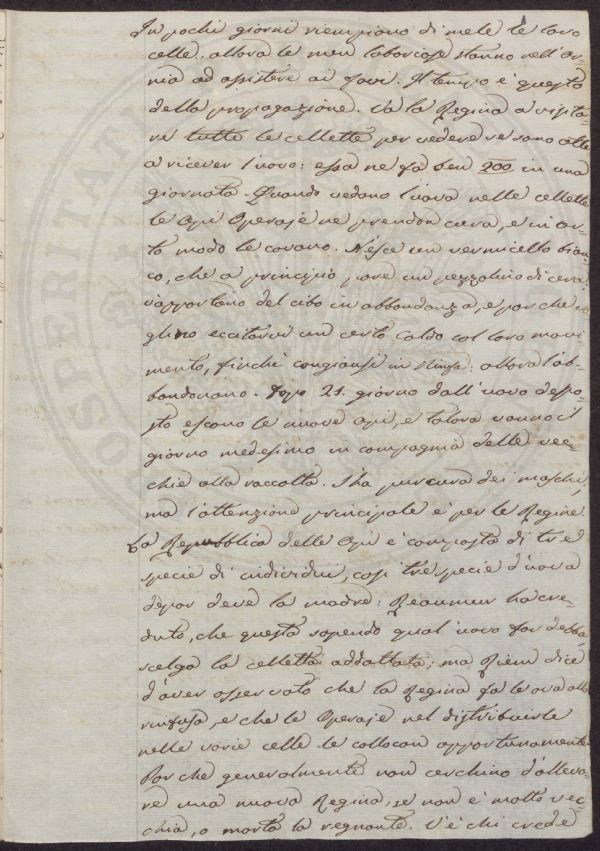 In pochi giorni riempiono di mele le loro
celle. allora le men laboriose stanno nell'ar-
nia ad assistere ai favi. Il tempo è questo
della propagazione. Va la Regina a visita-
re tutte le cellette per vedere se sono atte
a ricever l'uovo: essa ne fa ben 200 in una
giornata. Quando vedono l'uova nelle cellette
le Api Operaje ne prendon cura, e in cer-
to modo le covano. N'esce un vermicello bian-
co, che a principio pare un pezzolino di cera,
v'apportano del cibo in abbondanza, e par che vo-
glino eccitarvi un certo caldo col loro movi-
mento, finchè cangiansi in Ninfa: allora l'ab-
bandonano. Dopo 21. giorno dall'uovo depo-
sto escono le nuove api, e talora vanno il
giorno medesimo in compagnia delle vec-
chie alla raccolta. S'ha pur cura dei maschi,
ma l'attenzione principale è per le Regine.
La Repubblica delle Api è composta di tre
specie di individui, così tre specie d'uova
depor deve la madre: Reaumur ha cre-
duto, che questa sapendo qual uovo far debba
scelga la celletta addattata; ma Riem dice
d'aver osservato che la Regina fa le ova alla
rinfusa, e che le Operaje nel distribuirle
nelle varie celle le collocan opportunamente.
Par che generalmente non cerchino d'alleva-
re una nuova Regina, se non è molto vec-
chia, o morta la regnante. V'è chi crede